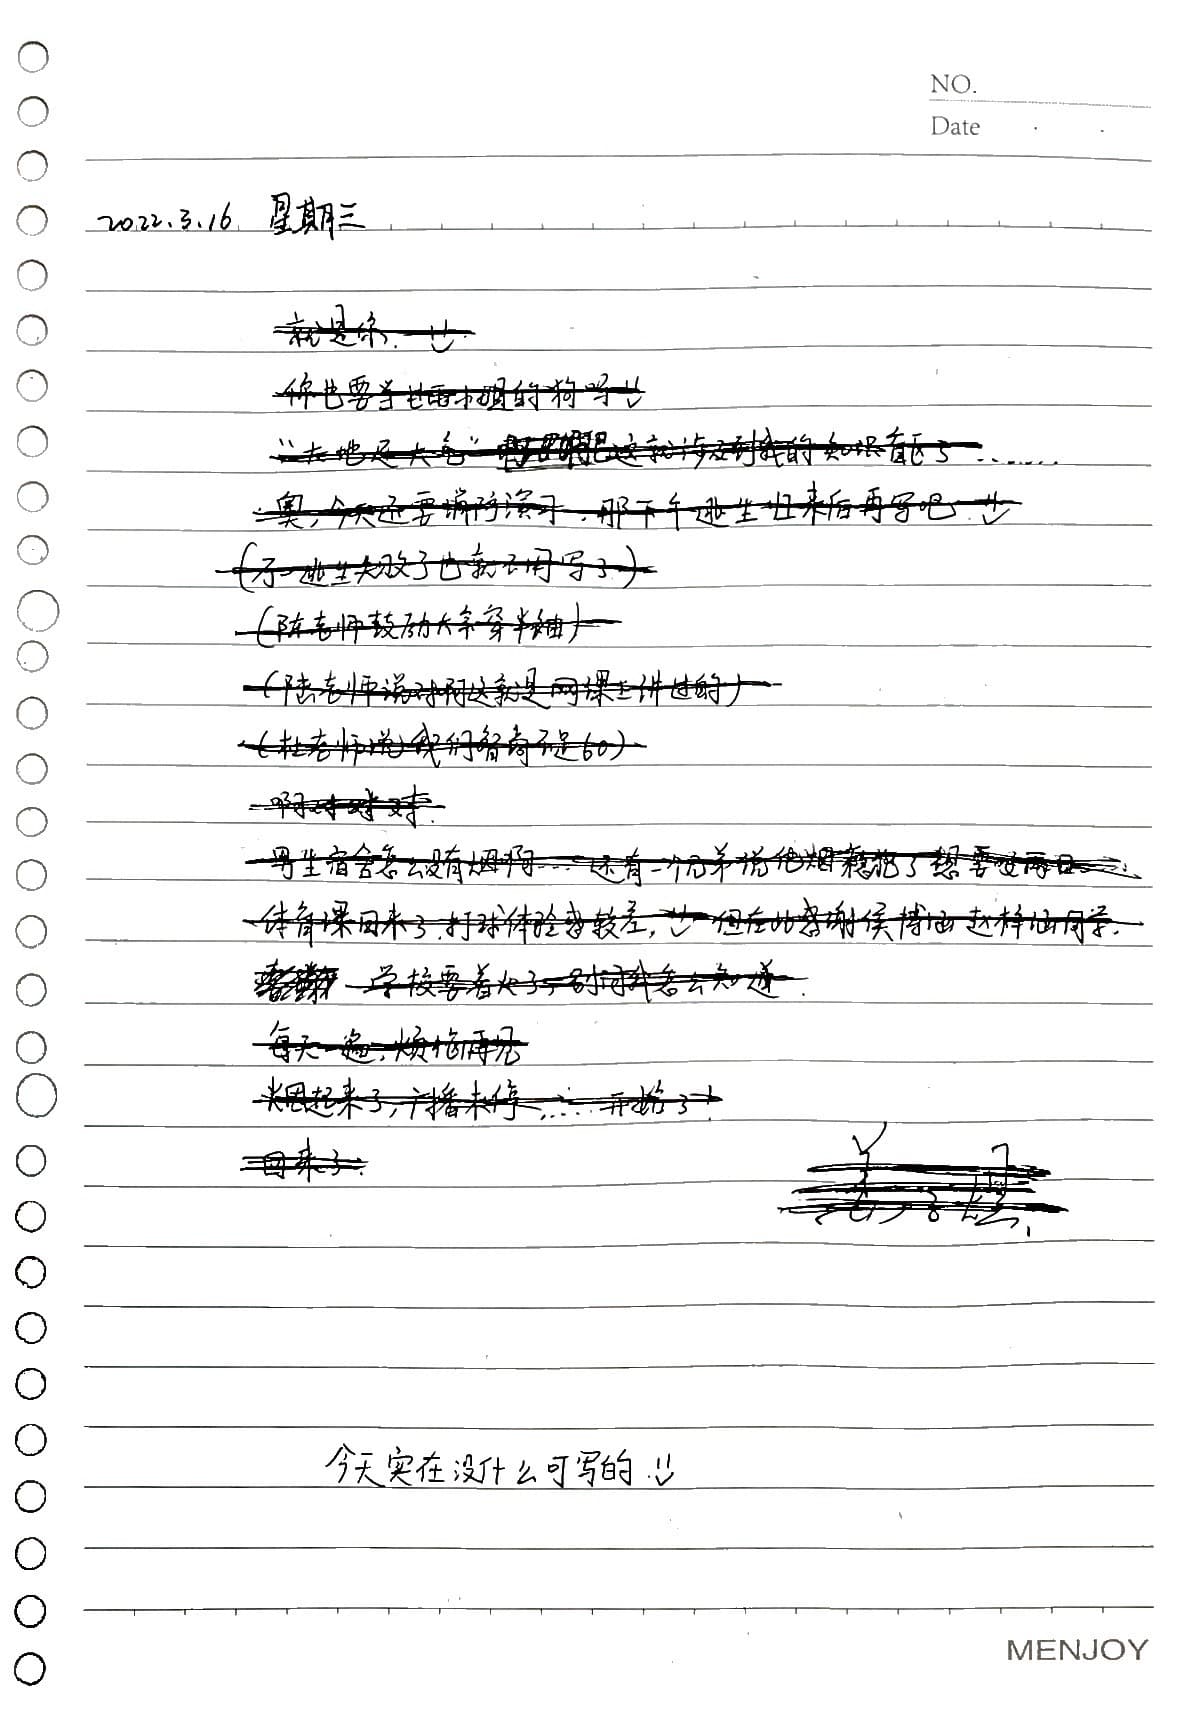 NO.
Date
2022.3.16 星期三
就是你.
你也要当 小姐的狗吗
这就涉及到我的知识盲区了........
奥,今天还要消防演习,那下午逃生归来后再写吧
(万一逃生失败了也就不用写了)
(陈老师鼓励大家穿半袖)
(陆老师说对啊这就是网课上讲过的)
(杜老师说我们智商不足60)
啊对对对.
男生宿舍怎么没有烟啊... 还有一个兄弟说他烟瘾犯了想要
体育课回来了.打球体验感较差, 但在此感谢侯博涵赵梓涵同学.
学校要着火了,别问我怎么知道.
每天一遍,烦恼再见
米恩起来了,广播未停..... 开始了!
回来了.
今天实在没什么可写的.
MENJOY